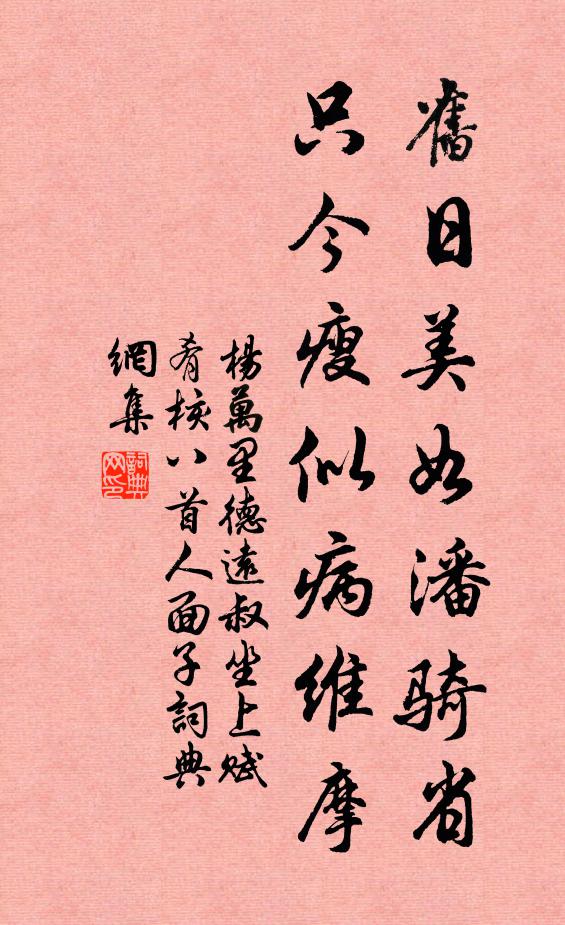 舊日美如潘騎省
只今瘦似病維摩
楊萬里德遠叔坐上賦
肴核八首人面子詞典
網集
詞典
网印